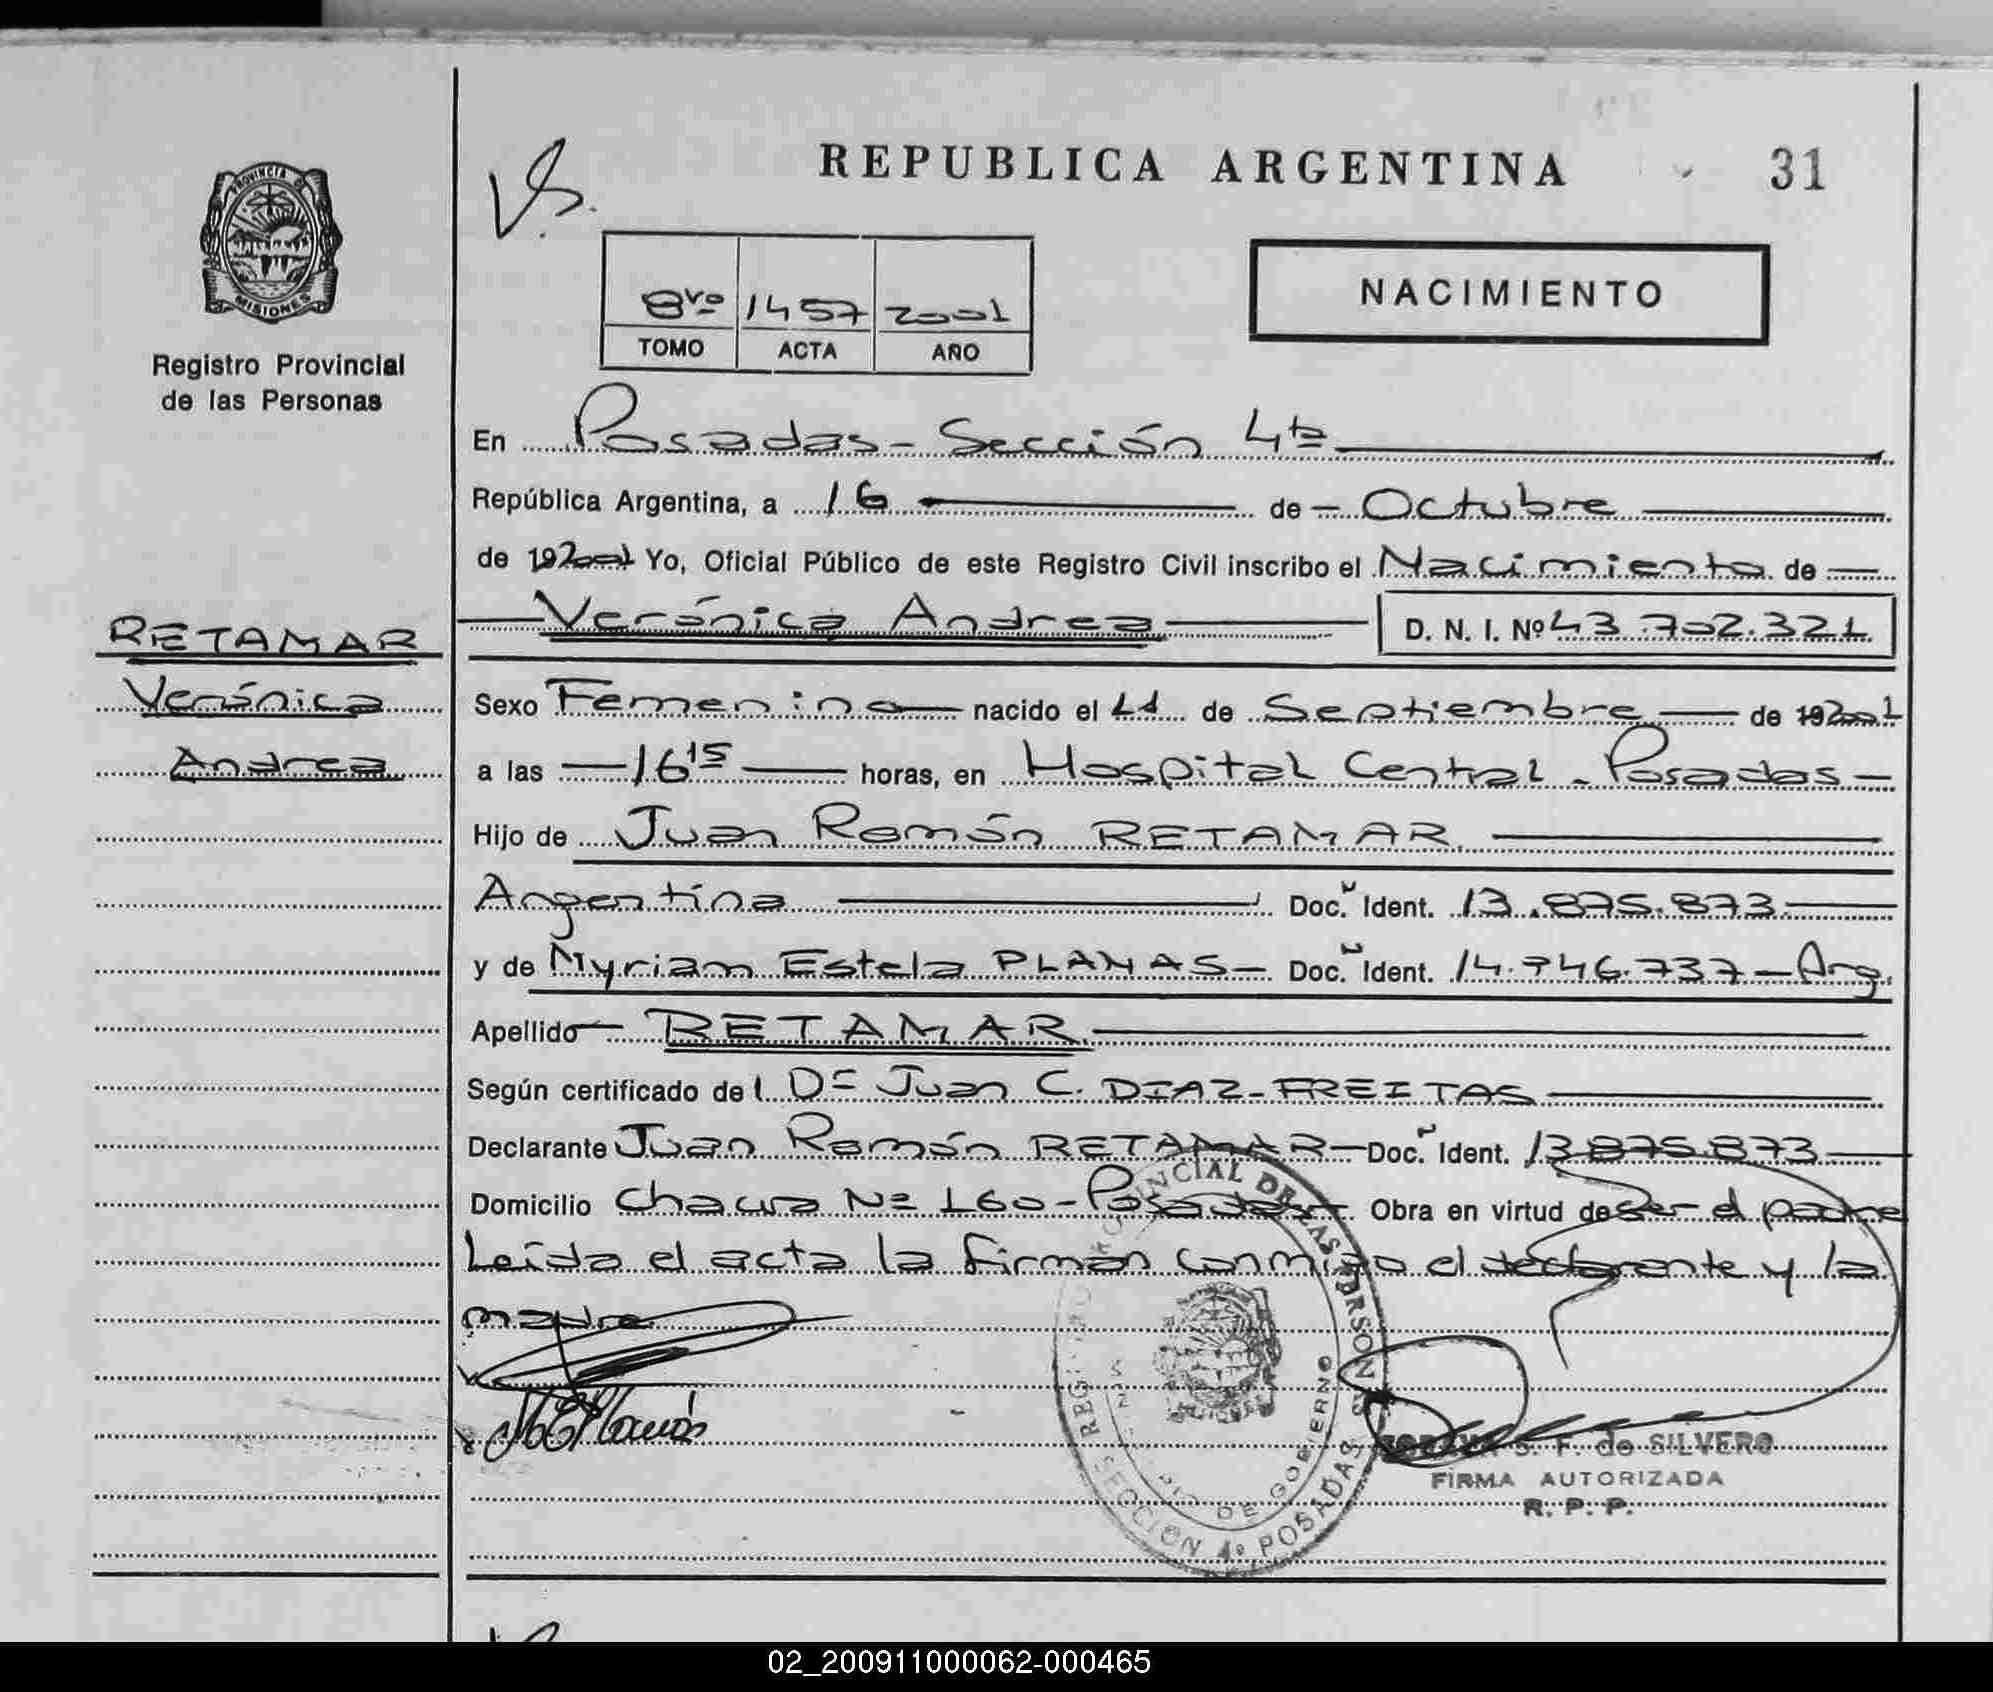 REPUBLICA ARGENTINA
31
PROVINCIA DE
MISIONES
Registro Provincial
de las Personas
8vo 1457 2001
TOMO ACTA AÑO
NACIMIENTO
En Posadas - Sección 4ta
República Argentina, a 16 de Octubre
de 192001 Yo, Oficial Público de este Registro Civil inscribo el Nacimiento de
Verónica Andrea D. N. I. Nº 43.702.321
RETAMAR
Verónica
Andrea
Sexo Femenino nacido el 11 de Septiembre de 192001
a las 16 15 horas, en Hospital Central - Posadas -
Hijo de Juan Ramón RETAMAR
Argentina Doc. Ident. 13.875.873
y de Myriam Estela PLANAS - Doc. Ident. 14.946.737 - Arg.
Apellido RETAMAR
Según certificado de l Dr Juan C. DIAZ-FREITAS
Declarante Juan Ramón RETAMAR - Doc. Ident. 13.875.873
Domicilio Chacra Nº 160 - Posadas Obra en virtud de ser el padre
Leída el acta la firman conmigo el declarante y la
madre
REGISTRO PROVINCIAL DE LAS PERSONAS
DE GOBIERNO
SECCION 4º POSADAS
S. F. de SILVERO
FIRMA AUTORIZADA
R. P. P.
02_200911000062-000465